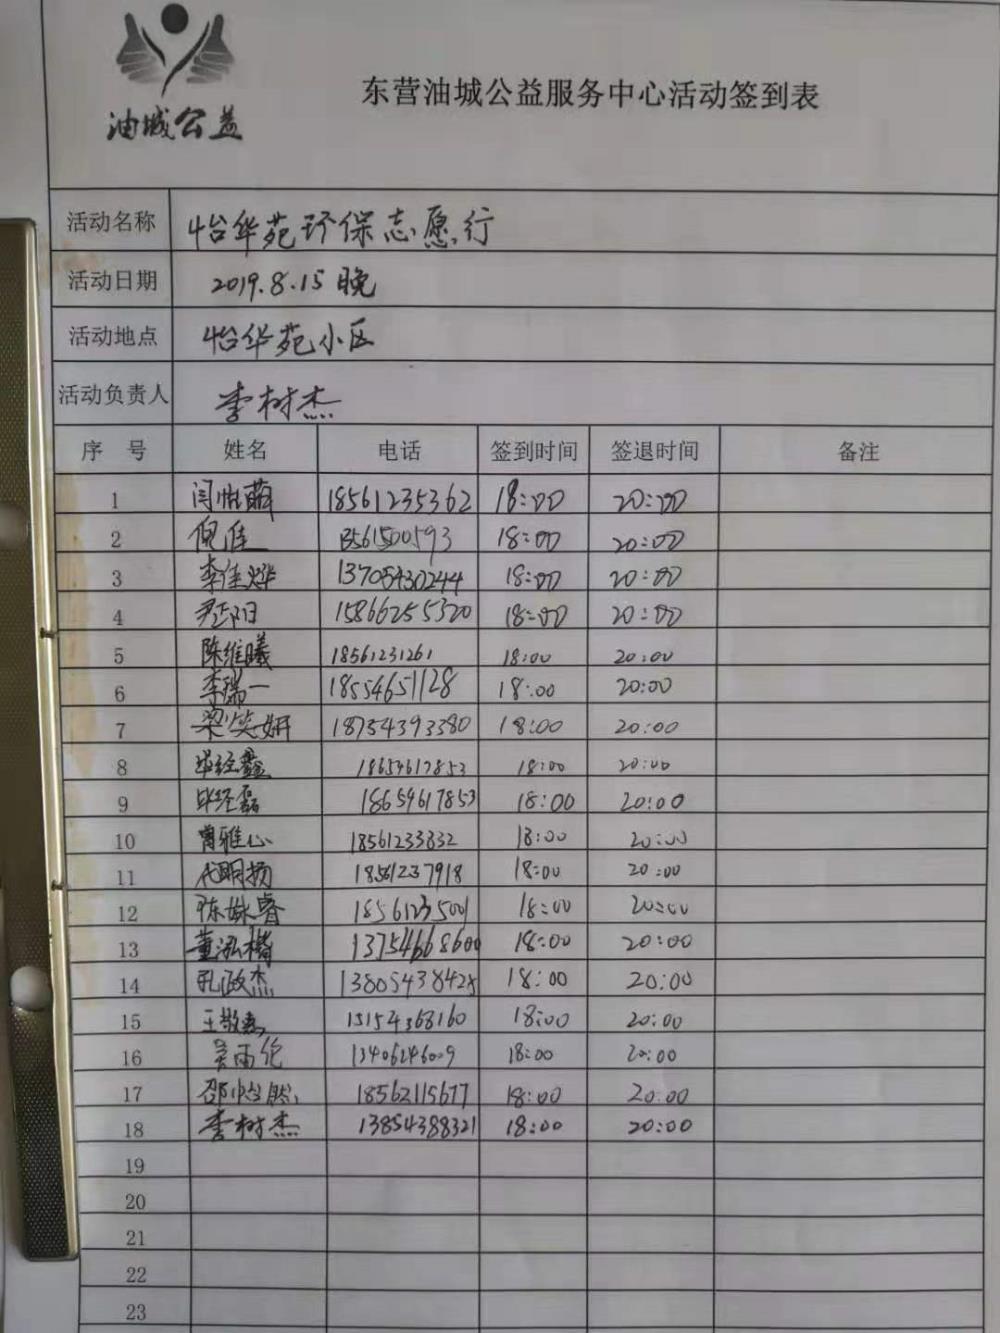 油城公益
东营油城公益服务中心活动签到表
活动名称 怡华苑环保志愿行
活动日期 2019.8.15 晚
活动地点 怡华苑小区
活动负责人 李树杰
序 号 姓名 电话 签到时间 签退时间 备注
1 闫怡萌 18561235362 18:00 20:00
2 倪佳 18:00 20:00
3 李佳烨 13705430244 18:00 20:00
4 15866255320 18:00 20:00
5 陈维曦 18561231261 18:00 20:00
6 李瑞一 18554651128 18:00 20:00
7 梁笑妍 18754393380 18:00 20:00
8 毕经鑫 18654617853 18:00 20:00
9 毕经磊 18654617853 18:00 20:00
10 曾雅心 18561233832 18:00 20:00
11 代明扬 18561237918 18:00 20:00
12 陈姝睿 18561235001 18:00 20:00
13 董泓楷 13754668600 18:00 20:00
14 孔政杰 13805438428 18:00 20:00
15 15154368160 18:00 20:00
16 13406246009 18:00 20:00
17 邵怡然 18562115677 18:00 20:00
18 李树杰 13854388321 18:00 20:00
19
20
21
22
23